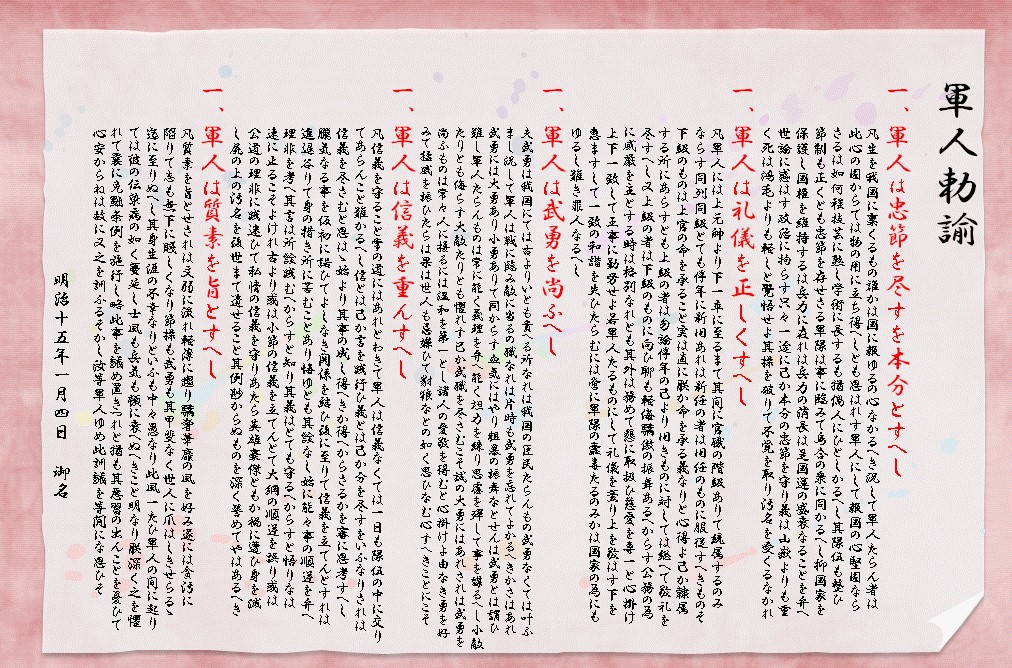 軍人勅諭
一、軍人は忠節を尽すを本分とすへし
凡生を我国に稟くるもの誰かは国に報ゆるの心なかるへき況して軍人たらん者は
此心の固からては物の用に立ち得へしとも思はれす軍人にして報国の心堅固なら
さるは如何程技芸に熟し学術に長するも猶偶人にひとしかるへし其隊伍も整ひ
節制も正くとも忠節を存せさる軍隊は事に臨みて烏合の衆に同かるへし抑国家を
保護し国権を維持するは兵力に在れは兵力の消長は是国運の盛衰なることを弁へ
世論に惑はす政治に拘らす只々一途に己か本分の忠節を守り義は山嶽よりも重
く死は鴻毛よりも軽しと覚悟せよ其操を破りて不覚を取り汚名を受くるなかれ
一、軍人は礼儀を正しくすへし
凡軍人には上元帥より下一卒に至るまて其間に官職の階級ありて統属するのみ
ならす同列同級とても停年に新旧あれは新任の者は旧任のものに服従すへきものそ
下級のものは上官の命を承ること実は直に朕か命を承る義なりと心得よ己か隷属
する所にあらすとも上級の者は勿論停年の己より旧きものに対しては総へて敬礼を
尽すへし又上級の者は下級のものに向ひ聊も軽侮驕傲の振舞あるへからす公務の為
に威厳を主とする時は格別なれとも其外は務めて懇に取扱ひ慈愛を専一と心掛け
上下一致して王事に勤労せよ若軍人たるものにして礼儀を紊り上を敬はす下を
恵ますして一致の和諧を失ひたらむには啻に軍隊の蠧毒たるのみかは国家の為にも
ゆるし難き罪人なるへし
一、軍人は武勇を尚ふへし
夫武勇は我国にては古よりいとも貴へる所なれは我国の臣民たらんもの武勇なくては叶ふ
まし況して軍人は戦に臨み敵に当るの職なれは片時も武勇を忘れてよかるへきかさはあれ
武勇には大勇あり小勇ありて同からす血気にはやり粗暴の振舞なとせんは武勇とは謂ひ
難し軍人たらんものは常に能く義理を弁へ能く胆力を練り思慮を殫して事を謀るへし小敵
たりとも侮らす大敵たりとも懼れす己か武職を尽さむこそ誠の大勇にはあれされは武勇を
尚ふものは常々人に接るには温和を第一とし諸人の愛敬を得むと心掛けよ由なき勇を好
みて猛威を振ひたらは果は世人も忌嫌ひて豺狼なとの如く思ひなむ心すへきことにこそ
一、軍人は信義を重んすへし
凡信義を守ること常の道にはあれとわきて軍人は信義なくては一日も隊伍の中に交り
てあらんこと難かるへし信とは己か言を践行ひ義とは己か分を尽すをいふなりされは
信義を尽さむと思はゝ始より其事の成し得へきか得へからさるかを審に思考すへし
朧気なる事を仮初に諾ひてよしなき関係を結ひ後に至りて信義を立てんとすれは
進退谷りて身の措き所に苦むことあり悔ゆとも其詮なし始に能々事の順逆を弁へ
理非を考へ其言は所詮践むへからすと知り其義はとても守るへからすと悟りなは
速に止るこそよけれ古より或は小節の信義を立てんとて大綱の順逆を誤り或は
公道の理非に践迷ひて私情の信義を守りあたら英雄豪傑ともか禍に遭ひ身を滅
し屍の上の汚名を後世まて遺せること其例尠からぬものを深く警めてやはあるへき
一、軍人は質素を旨とすへし
凡質素を旨とせされは文弱に流れ軽薄に趨り驕奢華靡の風を好み遂には貪汚に
陥りて志も無下に賤しくなり節操も武勇も其甲斐なく世人に爪はしきせらるゝ
迄に至りぬへし其身生涯の不幸なりといふも中々愚なり此風一たひ軍人の間に起り
ては彼の伝染病の如く蔓延し士風も兵気も頓に衰へぬへきこと明なり朕深く之を懼
れて曩に免黜条例を施行し略此事を誡め置きつれと猶も其悪習の出んことを憂ひて
心安からねは故に又之を訓ふるそかし汝等軍人ゆめ此訓誡を等閒にな思ひそ
明治十五年一月四日 御名